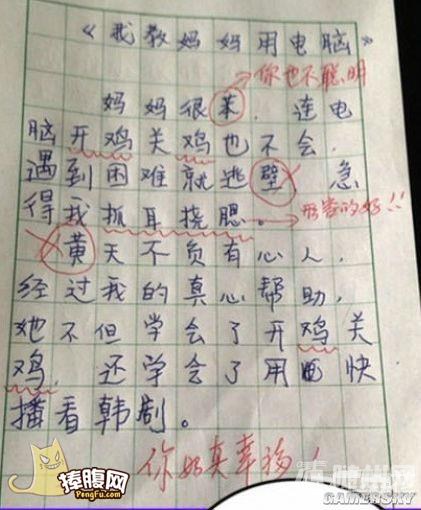 《我教妈妈用电脑》
你也不聪明
妈妈很苯，连电
脑开鸡关鸡也不会，
遇到困难就逃壁，急
得我抓耳挠腮。
形容的好！！
黄天不负有心人，
经过我的真心帮助，
她不但学会了开鸡关
鸡，还学会了用电快
播看韩剧。
你妈真幸福！
捧腹网
PENGFU.COM
GAMERSKY